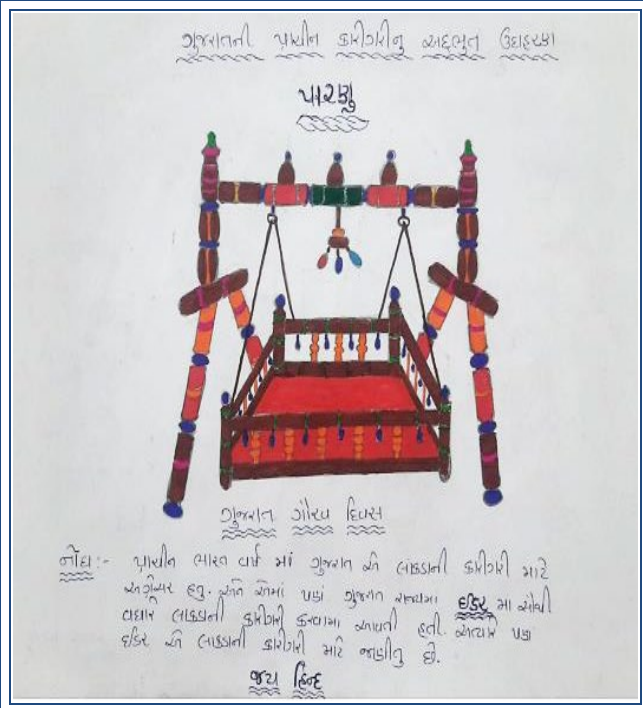 ગુજરાતની પ્રાચીન કારીગરીનુ અદ્દભુત ઉદાહરણ
પારણુ
ગુજરાત ગૌરવ દિવસ
નોંધ:- પ્રાચીન ભારત વર્ષ માં ગુજરાત એ લાકડાની કારીગરી માટે
અગ્રેસર હતુ. અને એમાં પણ ગુજરાત રાજ્યમા ઈડર મા સૌથી
વધારે લાકડાની કારીગરી કરવામા આવતી હતી. અત્યારે પણ
ઈડર એ લાકડાની કારીગરી માટે જાણીતુ છે.
જય હિન્દ